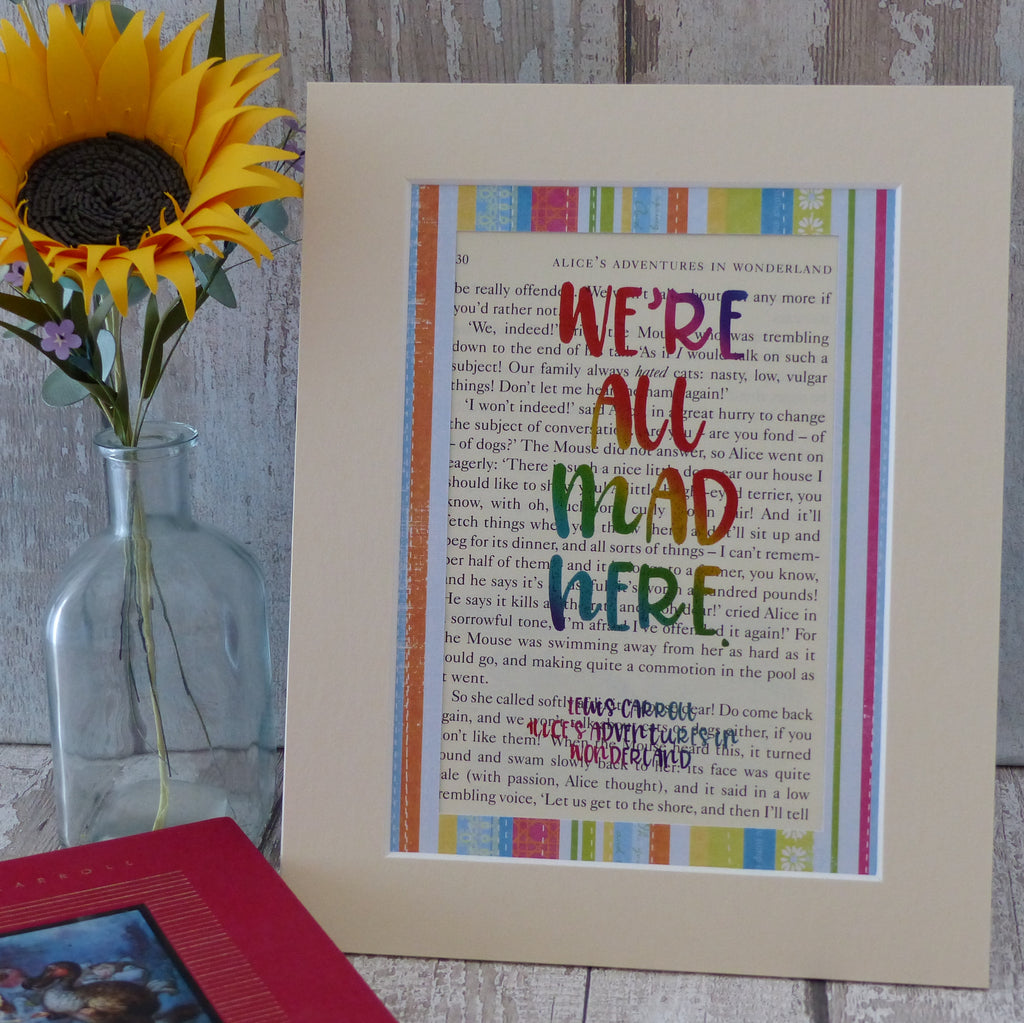 30 ALICE'S ADVENTURES IN WONDERLAND
be really offende 'We about any more if
you'd rather not.
'We, indeed!' the Mouse, who was trembling
down to the end of his tail. 'As if I would talk on such a
subject! Our family always hated cats: nasty, low, vulgar
things! Don't let me hear the name again!'
'I won't indeed!' said Alice, in a great hurry to change
the subject of conversation. 'Are you – are you fond – of
– of dogs?' The Mouse did not answer, so Alice went on
eagerly: 'There is such a nice little dog near our house I
should like to show you! A little bright-eyed terrier, you
know, with oh, such long curly brown hair! And it'll
fetch things when you throw them, and it'll sit up and
beg for its dinner, and all sorts of things – I can't remem-
ber half of them – and it belongs to a farmer, you know,
and he says it's so useful, it's worth a hundred pounds!
He says it kills all the rats and – oh dear!' cried Alice in
sorrowful tone, 'I'm afraid I've offended it again!' For
the Mouse was swimming away from her as hard as it
ould go, and making quite a commotion in the pool as
t went.
So she called softly after it: 'Mouse dear! Do come back
gain, and we won't talk about cats or dogs either, if you
on't like them!' When the Mouse heard this, it turned
ound and swam slowly back to her: its face was quite
ale (with passion, Alice thought), and it said in a low
rembling voice, 'Let us get to the shore, and then I'll tell
WE'RE
ALL
MAD
HERE.
LEWIS CARROLL
ALICE'S ADVENTURES IN
WONDERLAND
ARROLL